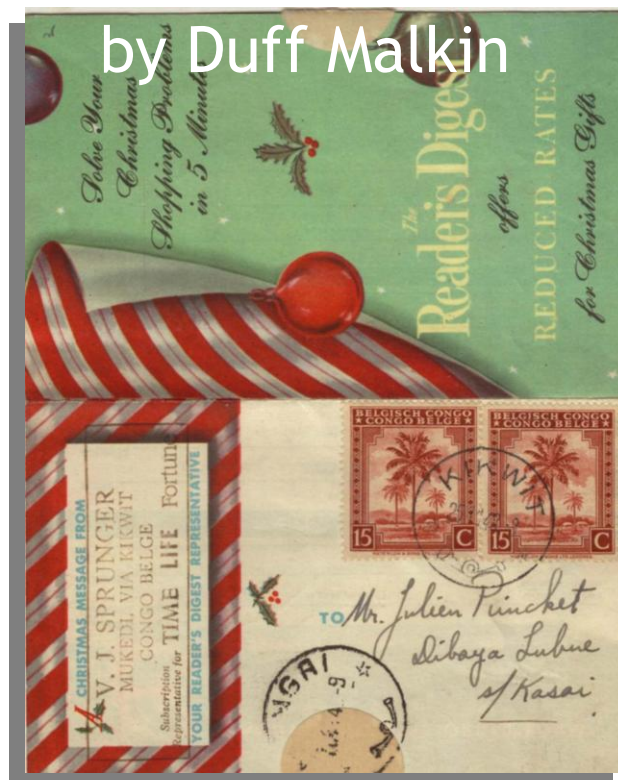 by Duff Malkin
Solve Your
Christmas
Shopping Problems
in 5 Minutes
The
Reader's Digest
offers
REDUCED RATES
for Christmas Gifts
A CHRISTMAS MESSAGE FROM
V. J. SPRUNGER
MUKEDI, VIA KIKWIT
CONGO BELGE
Subscription
Representative for TIME LIFE Fortune
YOUR READER'S DIGEST REPRESENTATIVE
BELGISCH CONGO
CONGO BELGE
15 C
BELGISCH CONGO
CONGO BELGE
15 C
KIKWIT
TO Mr. Julien Pincket
Dibaya Lubue
s/Kasai